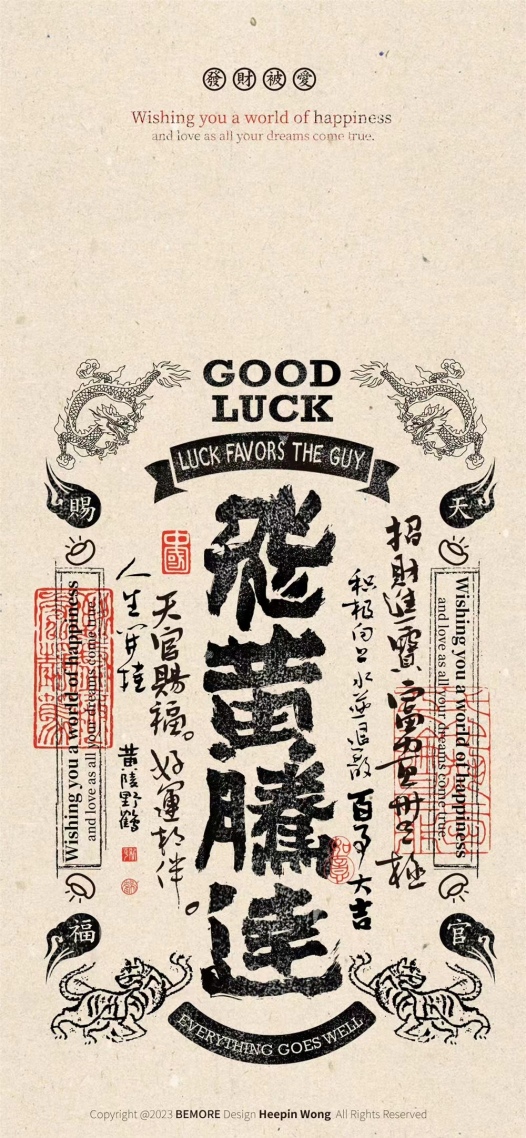 發財被愛
Wishing you a world of happiness
and love as all your dreams come true.
GOOD
LUCK
LUCK FAVORS THE GUY
賜
天
中國
飛黃騰達
招財進寶
積極向上
百事大吉
天官賜福。好運相伴。
人生開掛
黃陵野鶴
Wishing you a world of happiness
and love as all your dreams come true.
Wishing you a world of happiness
and love as all your dreams come true.
福
官
EVERYTHING GOES WELL
Copyright @2023 BEMORE Design Heepin Wong All Rights Reserved